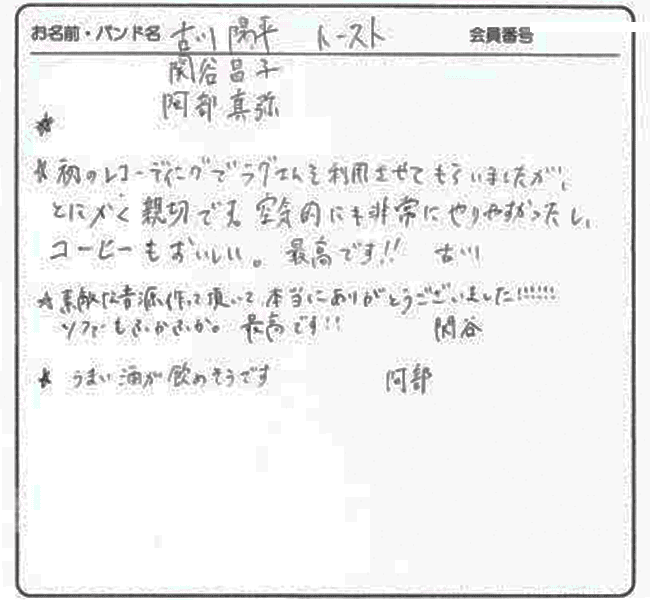 お名前・バンド名 古川 陽平 トースト 会員番号
関谷 昌子
阿部 真弥
★
★ 初のレコーディングでラグさんを利用させてもらいましたが、
とにかく親切でき、空気的にも非常にやりやすかったし、
コーヒーもおいしい。最高です!! 古川
★ 素敵な音源作って頂いて、本当にありがとうございました!!!!!!
ソファーもふかふか。最高です!! 関谷
★ うまい酒が飲めそうです 阿部